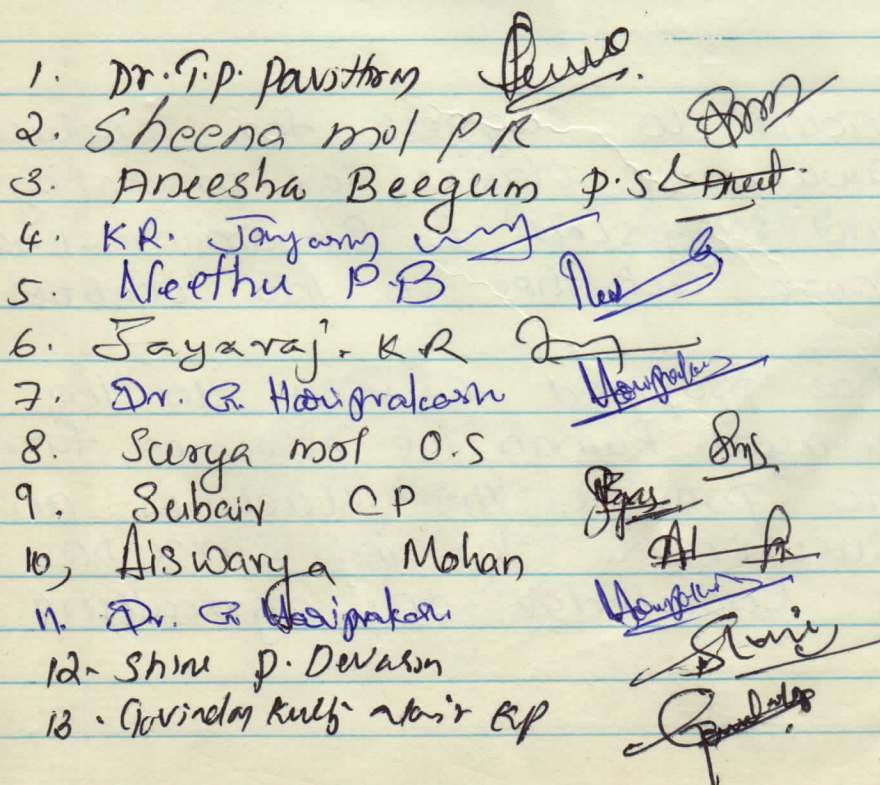 1. Dr. T.P. Pavithran
2. Sheena mol P R
3. Aneesha Beegum P.S
4. K R. Jayasny
5. Neethu P.B
6. Jayaraj. K R
7. Dr. G. Hariprakash Hariprakash
8. Surya mol O.S
9. Subair CP
10, Aiswarya Mohan
11. Dr. G. Hariprakash Hariprakash
12. Shine P. Devasia
13. Govindan Kutty Nair KP